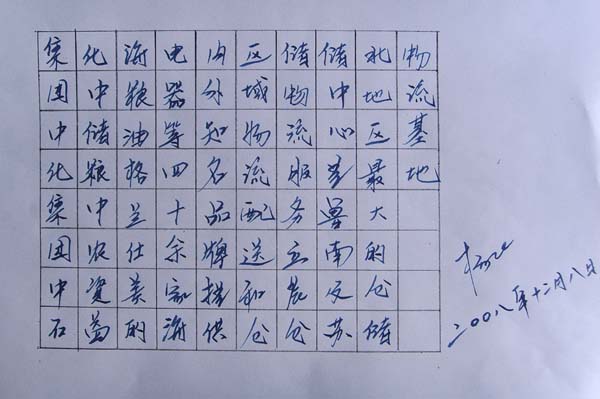 集团中化集团中石
化中储粮中农资益
海粮油格兰仕美的
电器等四十余家海
内外知名品牌提供
区域物流配送和仓
储物流服务立晨仓
储中心是鲁南及苏
北地区最大的仓储
物流基地
二00八年十二月八日